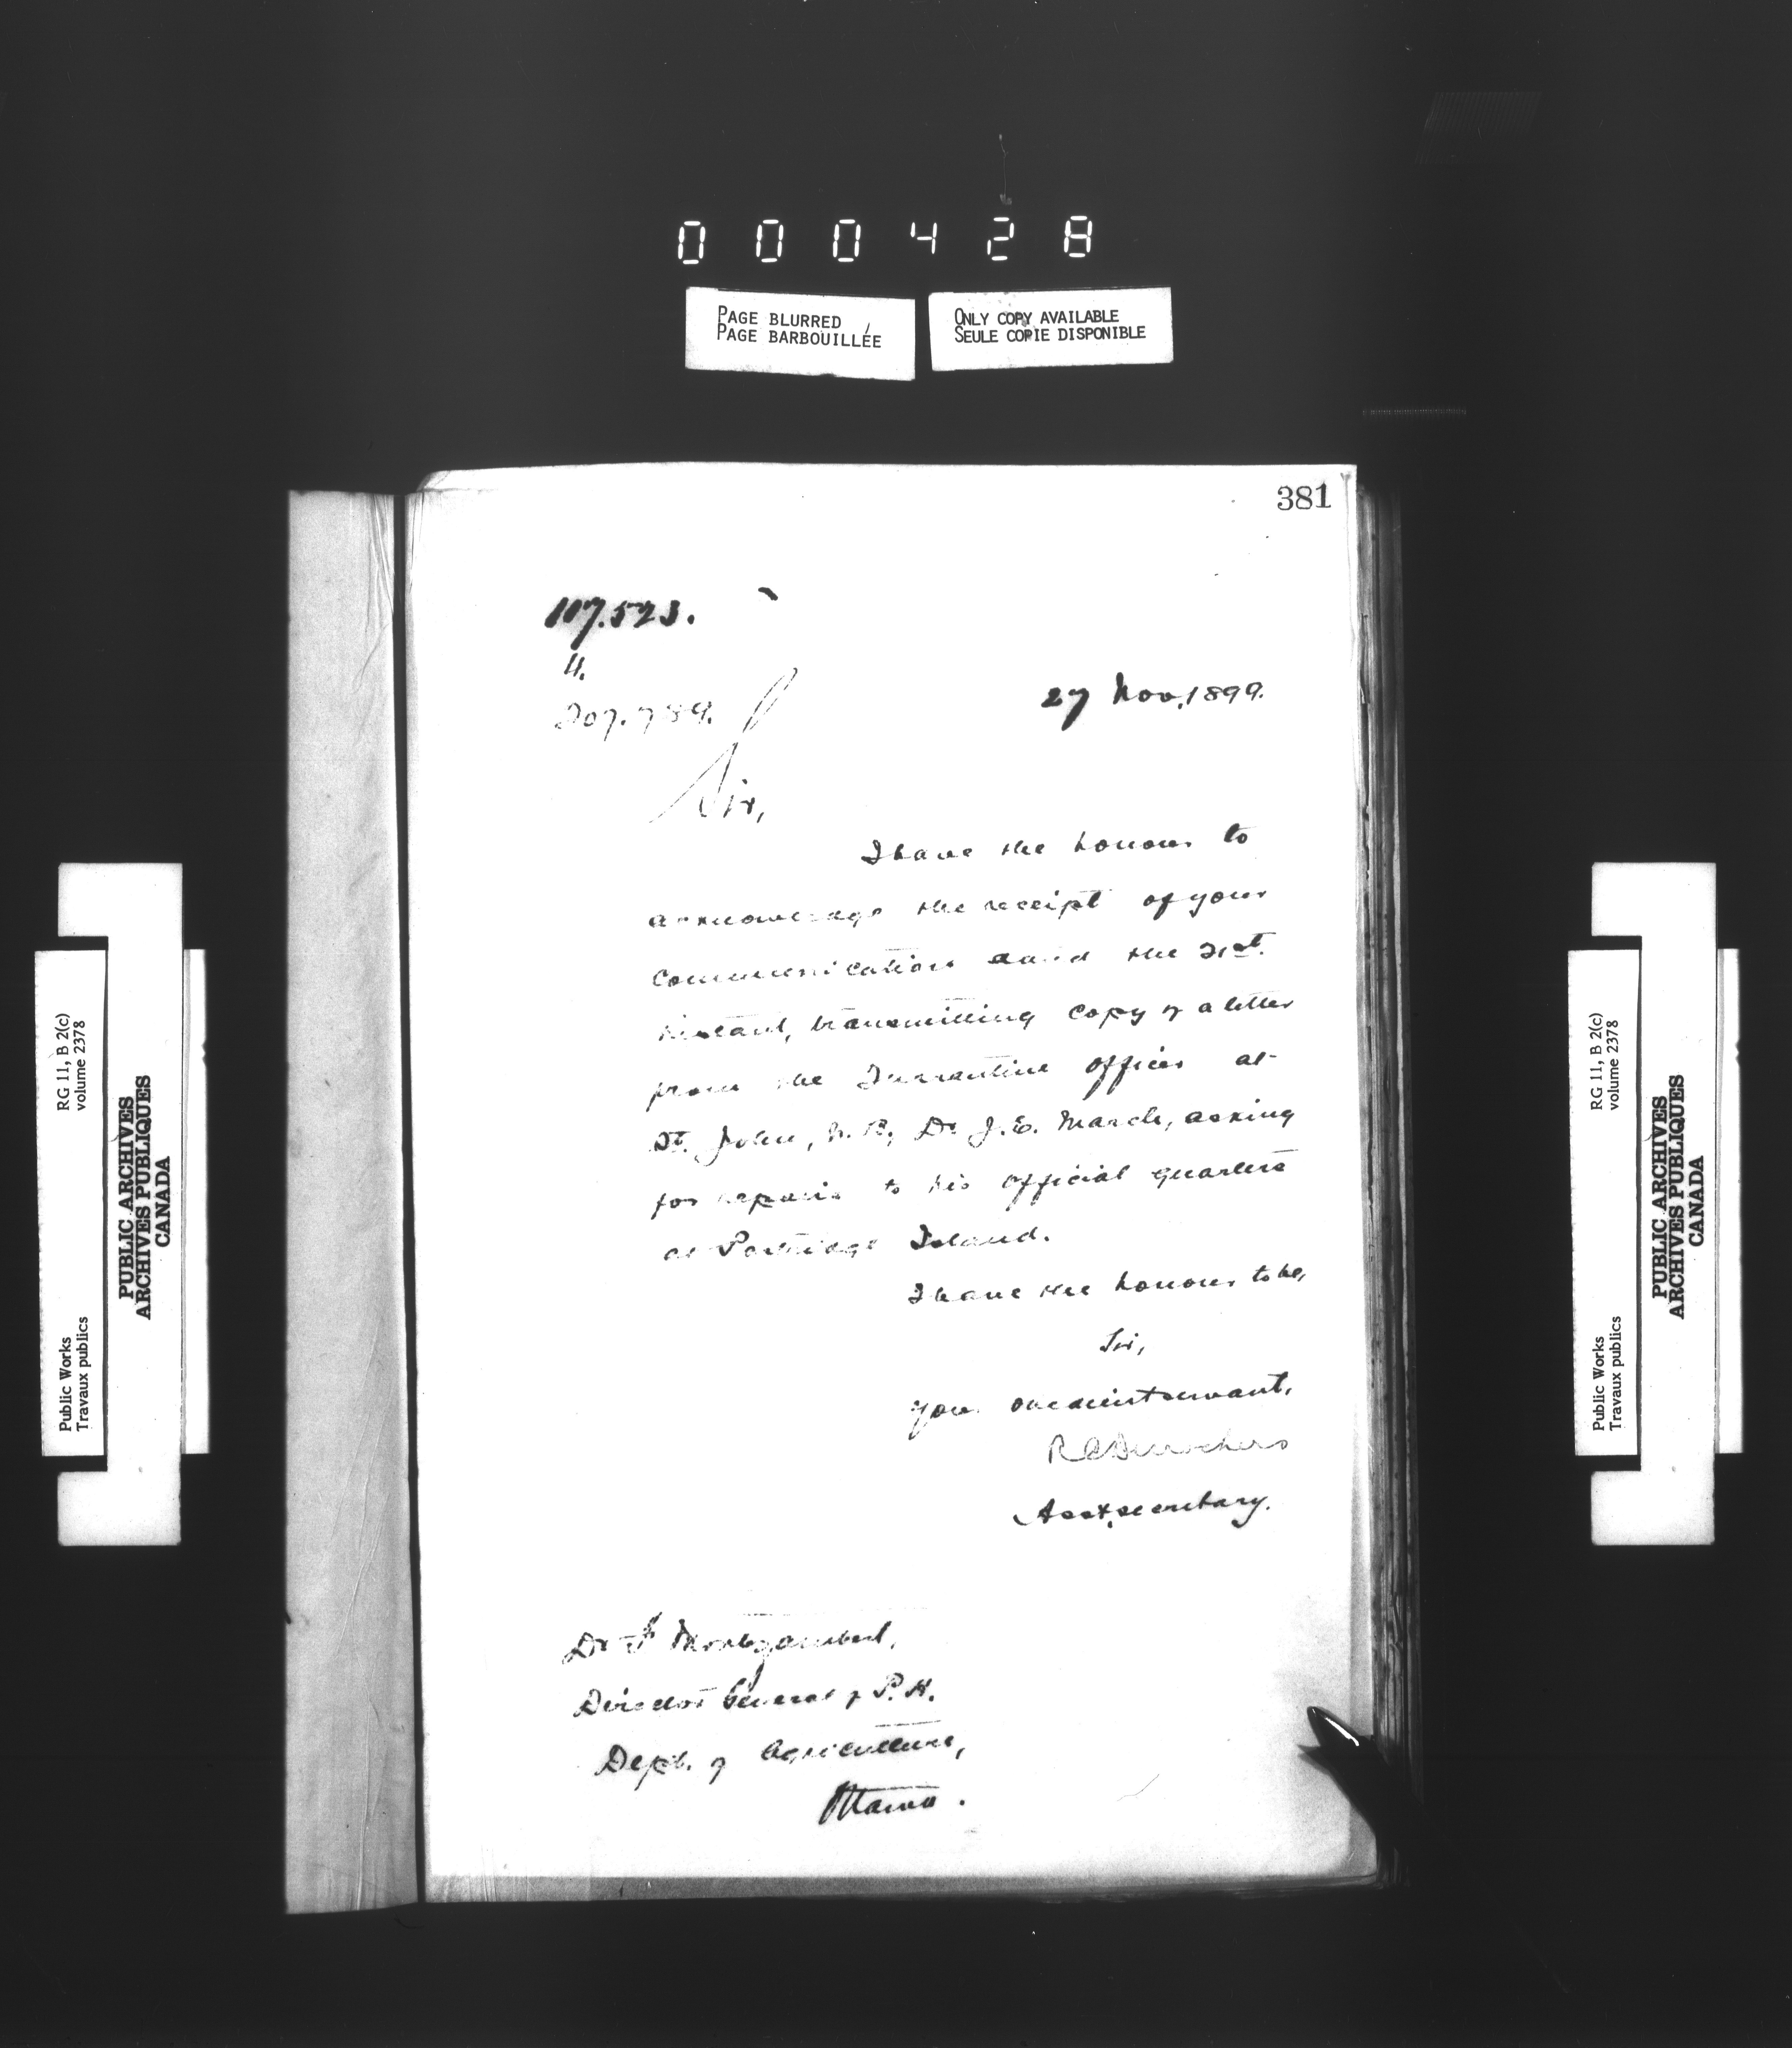 000428
PAGE BLURRED
PAGE BARBOUILLÉE
ONLY COPY AVAILABLE
SEULE COPIE DISPONIBLE
381
107.523.
27 Nov. 1899.
207.789.
Sir,
I have the honour to
acknowledge the receipt of your
communication dated the 21st.
instant, transmitting copy of a letter
from the Quarantine Officer at
St. John, N.B., Dr. J.E. March, asking
for repairs to his official quarters
at Partridge Island.
I have the honour to be,
Sir,
Your obedient servant,
RC Desrochers
Asst. secretary.
Dr. F. Montizambert,
Director General of P.H.
Dept. of Agriculture,
Ottawa.
RG 11, B 2(c)
volume 2378
Public Works
Travaux publics
PUBLIC ARCHIVES
ARCHIVES PUBLIQUES
CANADA
RG 11, B 2(c)
volume 2378
Public Works
Travaux publics
PUBLIC ARCHIVES
ARCHIVES PUBLIQUES
CANADA